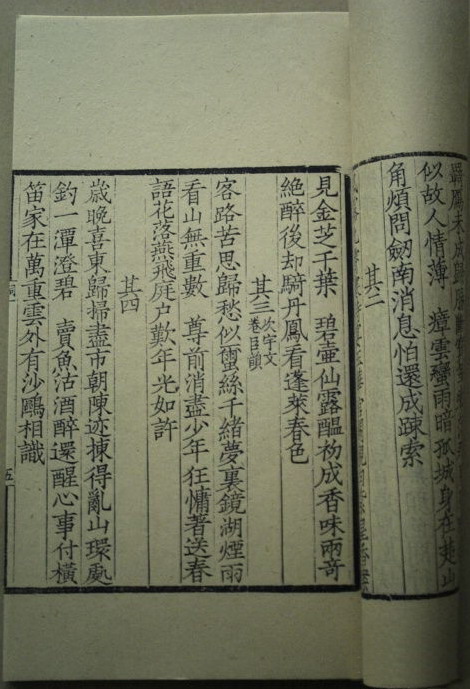 羈雁未成歸
似故人情薄　瘴雲蠻雨暗孤城身在山
角煩問劒南消息怕還成疎索
其二
見金芝千葉　碧壺仙露醞初成香味兩奇
絕醉後却騎丹鳳看蓬萊春色
其三次宇文卷臣韻
客路苦思歸愁似蠒絲千緒夢裏鏡湖煙雨
看山無重數　尊前消盡少年狂慵著送春
語花落燕飛庭戶歎年光如許
其四
歲晚喜東歸掃盡市朝陳迹揀得亂山環處
釣一潭澄碧　賣魚沽酒醉還醒心事付橫
笛家在萬重雲外有沙鷗相識
五